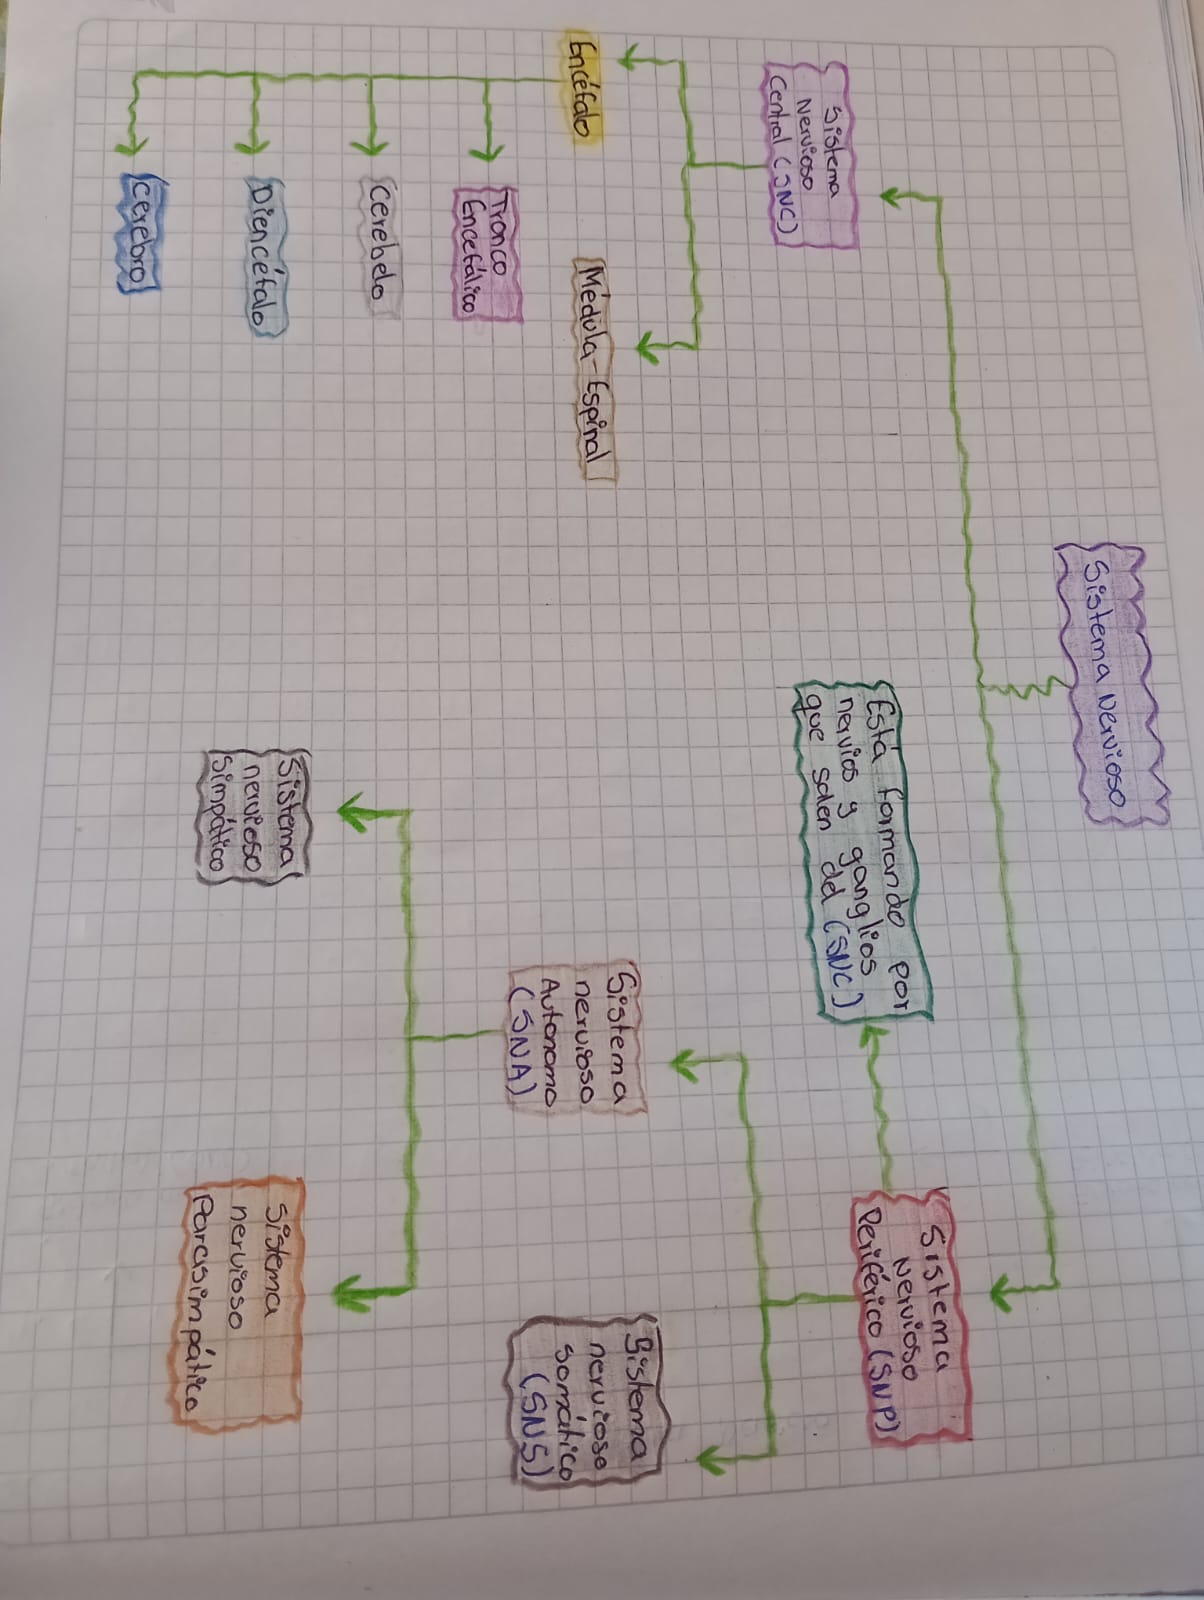 Sistema Nervioso
Sistema
Nervioso
Central (SNC)
Encéfalo
Médula-Espinal
Tronco
Encefálico
Cerebelo
Diencéfalo
Cerebro
Sistema
Nervioso
Periférico (SNP)
Está formando por
nervios y ganglios
que salen del (SNC)
Sistema
nervioso
Autonomo
(SNA)
Sistema
nervioso
somático
(SNS)
Sistema
nervioso
Simpático
Sistema
nervioso
Parasimpático